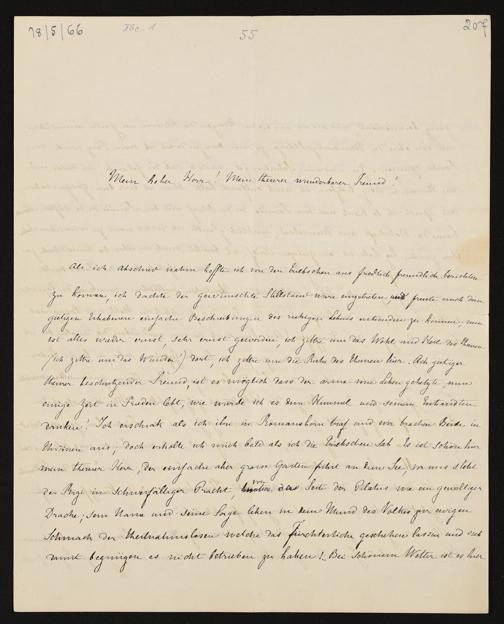 18/5/66
55
207
Mein hoher Herr! Mein theurer wunderbarer Freund!
Als ich Abschied nahm hoffte ich von den Erlösten aus friedlich freundlich berichten
zu können, ich dachte der gewünschte Stillstand wäre eingetreten und freute mich dem
gütigen Erhabenen einfache Beschreibungen des ruhigen Lebens entsenden zu können; nun
ist alles wieder ernst sehr ernst geworden, ich zittre um das Wohl und Heil des Theuren
(ich zittre um das Wunder!) dort, ich zittre um die Ruhe des Theuren hier. Ach gütiger
theurer beschützender Freund, ist es möglich dass der arme vom Leben gehetzte, nun
einige Zeit in Frieden lebt, wie würde ich es dem Himmel und seinem Entsandten
danken! Ich erschrak als ich ihn in Romanshorn traf und wir brachen Beide in
Thränen aus; doch erholte ich mich bald als ich die Freundlichen sah. Es ist schön hier
mein theurer Herr, der einfache aber grosse Garten führt an den See, vor uns steht
der Rigi in schwerfälliger Pracht, von der Seite der Pilatus wie ein gewaltiger
Drache; sein Name und seine Sage leben in dem Mund des Volkes zur ewigen
Schmach der Theilnahmslosen welche das Fürchterliche geschehen lassen und sich
damit begnügen es nicht betrieben zu haben! Bei schönem Wetter ist es hier